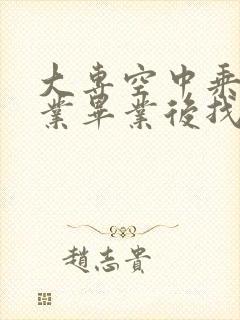 大專空中乘
業畢業後找
趙志貴